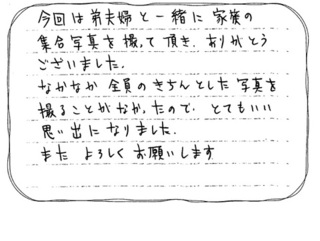 今回は弟夫婦と一緒に家族の
集合写真を撮って頂き、ありがとう
ございました。
なかなか全員のきちんとした写真を
撮ることがなかったので、とてもいい
思い出になりました。
また よろしくお願いします